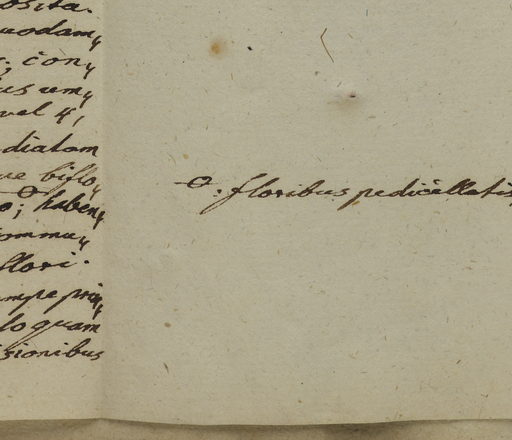 osita.
uodam„
con„
us um„
vel 4,
diatam
ue biflo„
o; haben„
ommu„
flori.
mpe prin„
lo quam
sionibus
floribus pedicellatis